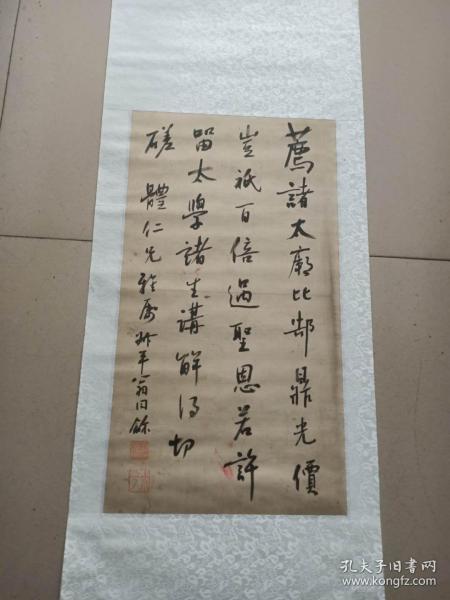 薦諸太廟比郜鼎光價
豈祇百倍過聖恩若許
留太學諸生講解得切
磋 體仁先雅屬 叔平翁同龢
孔夫子旧书网
www.kongfz.com